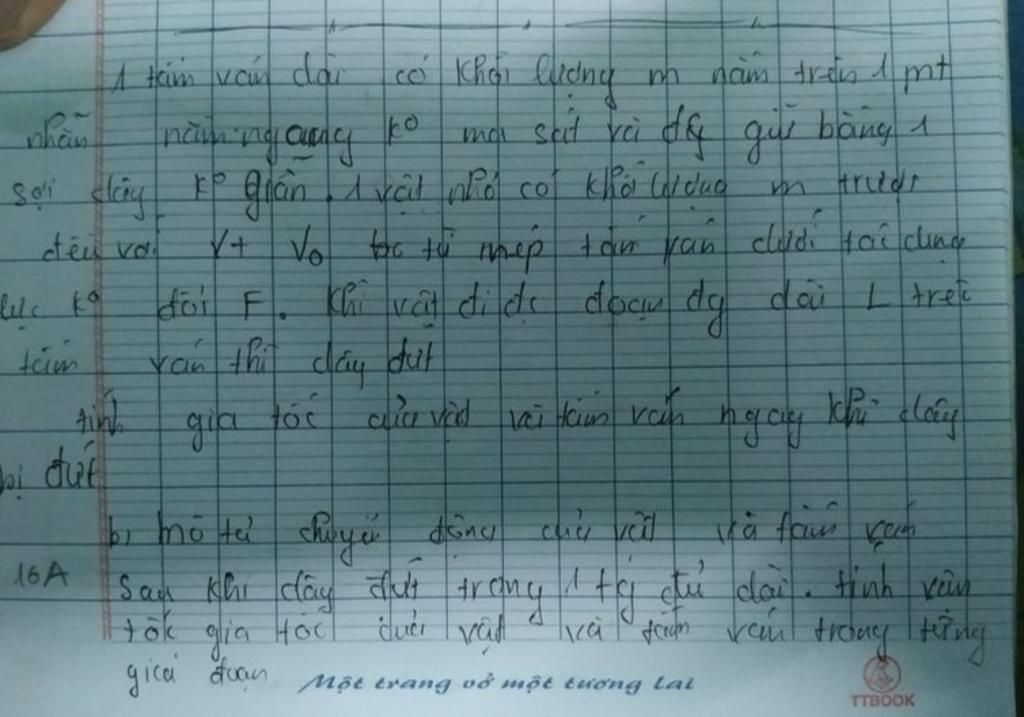 1 tấm ván dài có khối lượng m nằm trên 1 mt
nhẵn nằm ngang kº ma sát và đc giữ bằng 1
sợi dây kº giãn. 1 vật nhỏ có khối lượng m trượt
đều với vt v₀ từ mép tấm ván dưới tác dụng
lực kº đổi F. Khi vật đi đc đoạn đg dài L trên
tấm ván thì dây đứt
tính gia tốc của vật và tấm ván ngay khi dây
bị đứt
b, mô tả chuyển động của vật và tấm ván
16A sau khi dây đứt trong 1 tg đủ dài. tính vận
tốc gia tốc của vật và tấm ván trong từng
giai đoạn
Một trang vở một tương lai
TTBOOK